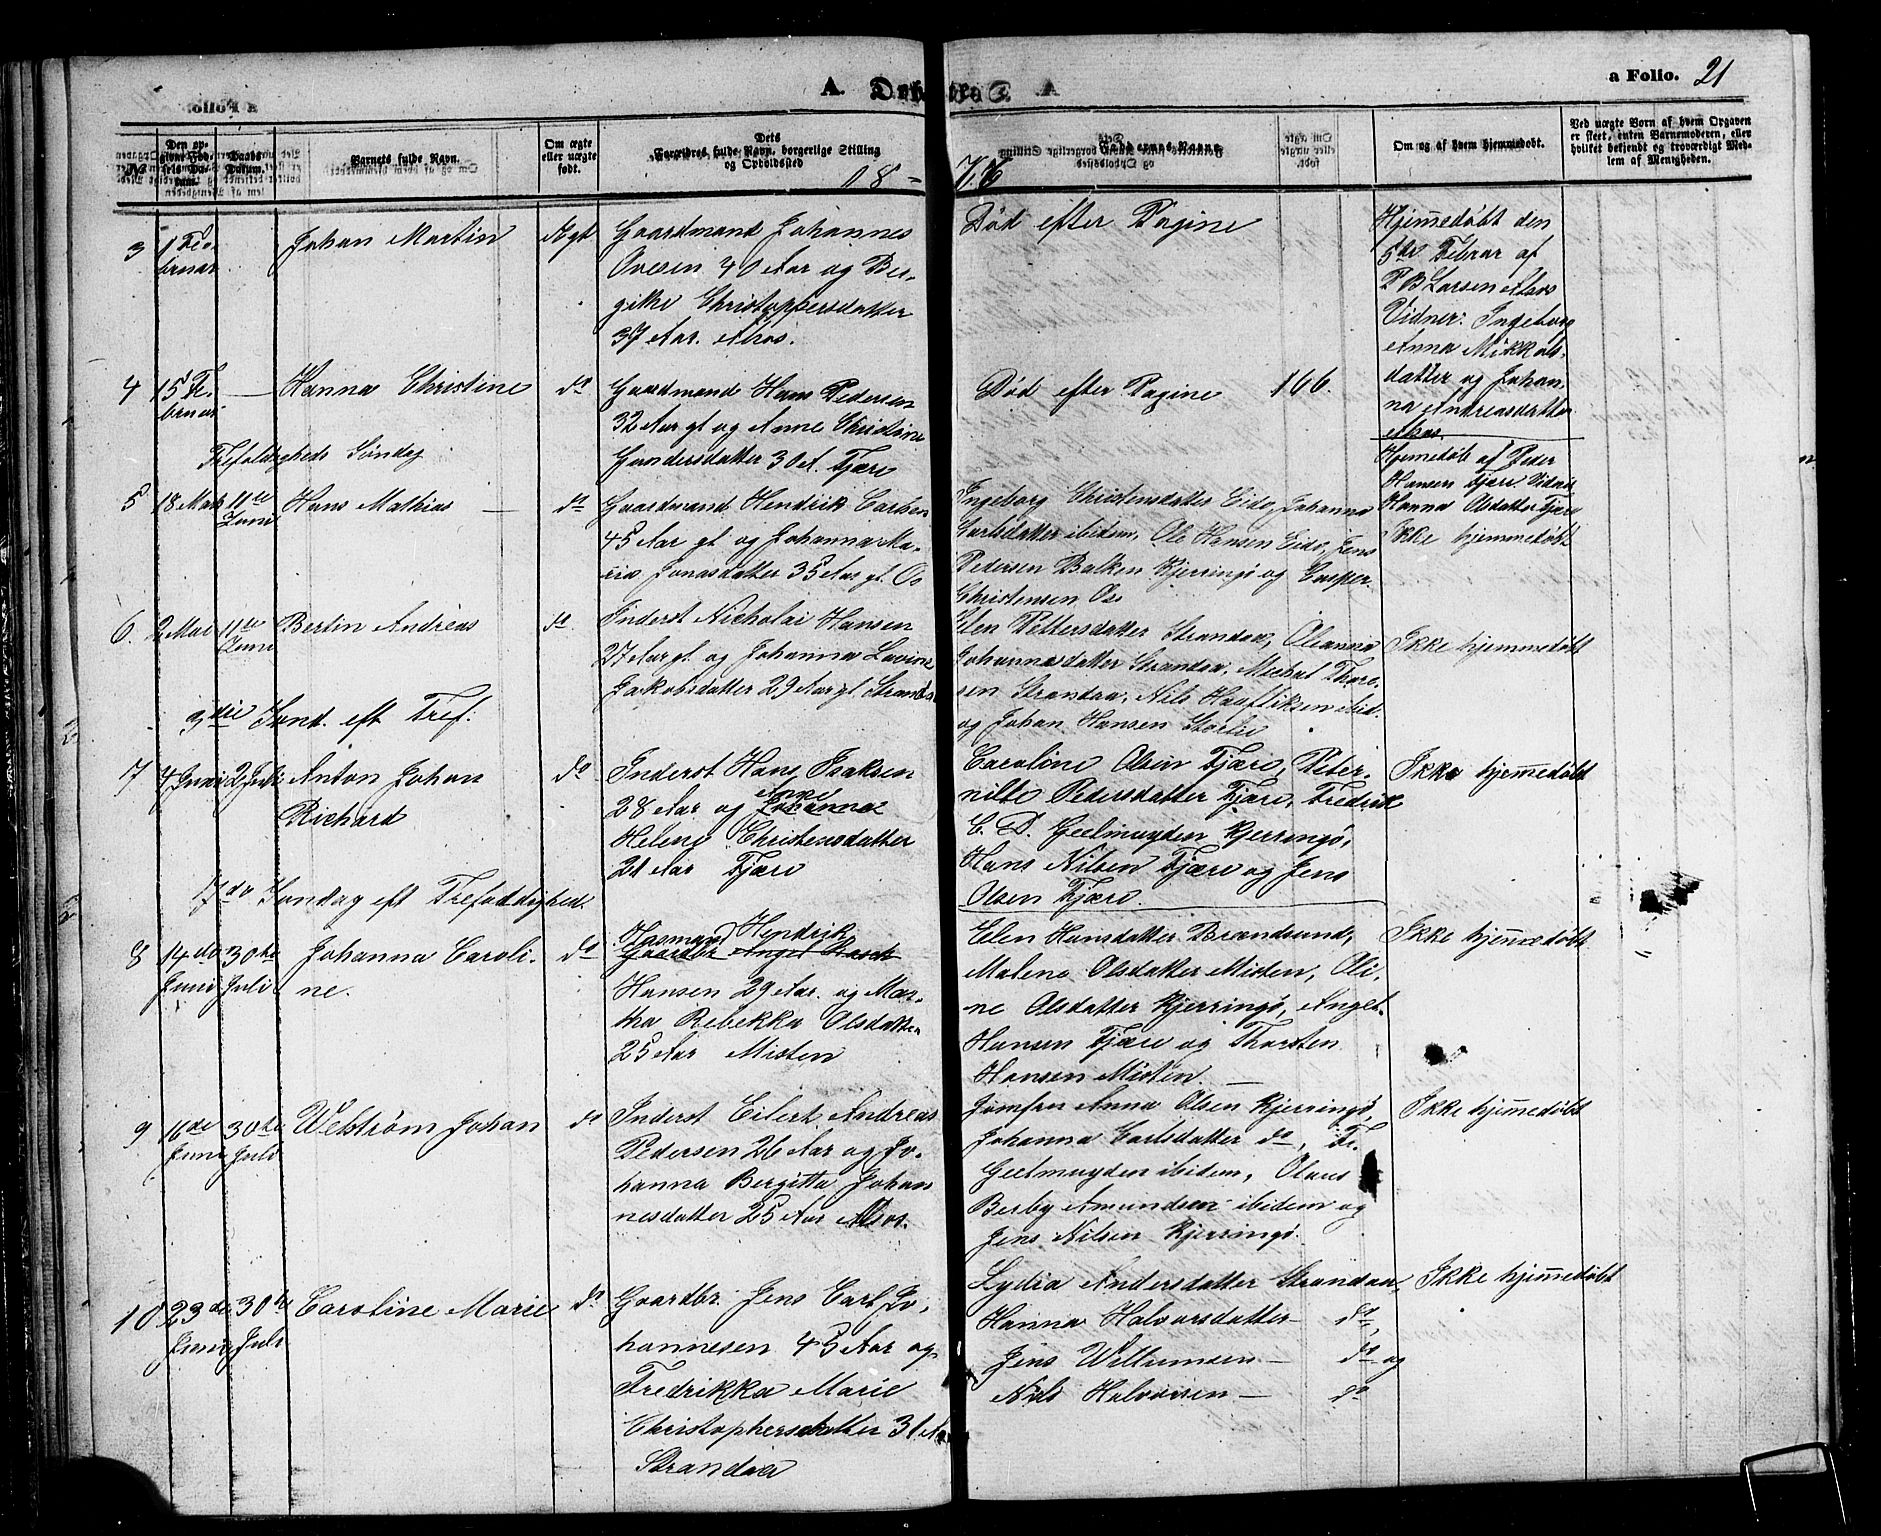 a Folio. 21
Den op-
givne Fød-
sels Da-
tum.
Daabs
Datum.
Barnets fulde Navn.
Om ægte
eller uægte
født.
Dets
Forældres fulde Navn, borgerlige Stilling
og Opholdssted
Faddernes Navne
Om og af hvem hjemmedøbt.
Ved uægte Børn af hvem Opgaven
er skeet, enten Barnemoderen, eller
hvilket bekjendt og troværdigt Med-
lem af Menigheden.
18 - 76
3
1 Fe-
bruar
Johan Martin
Ægt
Gaardmand Johannes
Ovesen 40 Aar og Ber-
githe Christophersdatter
37 Aar. Alsos.
Død efter Pagine
Hjemmedøbt den
5te Februar af
P B Larsen Alsos
Vidner: Ingeborg
Anna Mikkels-
datter og Johan-
na Andreasdatter
Alsos
4
15 Fe-
bruar
Hanna Christine
do
Gaardmand Hans Pedersen
32 Aar gl og Anne Christine
Gundersdatter 30 A. Fjære
Død efter Pagine 166.
Hjemmedøb af Peder
Hansen Fjære Vidner
Hanna Olsdatter Fjære
Trefoldigheds Søndag
5
18 Marts
11te
Juni
Hans Mathias
do
Gaardmand Hendrik Carlsen
45 Aar gl og Johanna Ma-
ria Jonasdatter 35 Aar gl. Os
Ingeborg Christensdatter Eidø, Johanna
Carlsdatter ibidem, Ole Hansen Eidø, Jens
Pedersen Balken Kjerringø og Casper
Christensen Os
Ikke hjemmedøbt
6.
2 Mai
11te
Juni
Bertin Andreas
do.
Inderst Nicholai Hansen
27 Aar gl. og Johanna Lovine
Jakobsdatter 29 Aar gl. Strandaa
Elen Pettersdatter Strandaa, Oleanna
Johannesdatter Strandaa, Michal Thore-
sen Strandaa, Nils Hauftiksen ibid.
og Johan Hansen Storlie
Ikke hjemmedøbt
3die Sønd. eft Tref.
7
4 Juni
2 Juli
Anton Johan
Richard
do
Inderst Hans Isaksen
28 Aar og Anne Johanna
Helene Christensdatter
21 Aar Fjære
Caroline Olsen Fjære, Peter-
nille Pedersdatter Fjære, Fredrik
C. D. Geelmuyden Kjerringø,
Hans Nilsen Fjære og Jens
Olsen Fjære.
Ikke hjemmedøbt
7de Søndag eft Trefoldighed.
8
14de
Juni
30te
Juli
Johanna Caroli-
ne.
do
Huusmand Hendrik
Gaardbr Angel Hansen
Hansen 29 Aar. og Mar-
tha Rebekka Olsdatter
25 Aar Misten
Elen Hansdatter Brændsund,
Malene Olsdatter Misten, Oli-
ne Olsdatter Kjerringø, Angel
Hansen Fjære og Thorsten
Hansen Misten.
Ikke hjemmedøbt
9
16de
Juni
30te
Juli
Welstrøm Johan
do
Inderst Eilert Andreas
Pedersen 26 Aar og Jo-
hanna Bergitta Johan
nesdatter 25 Aar Alsos.
Jomfru Anna Olsen Kjerringø,
Johanna Carlsdatter do, Fr.
Geelmuyden ibidem, Olaus
Berby Amundsen ibidem og
Jens Nilsen Kjerringø.
Ikke hjemmedøbt
10
23de
Juni
30te
Juli
Caroline Marie
do
Gaardbr. Jens Carl Jo-
hannesen 45 Aar og
Fredrikka Marie
Christophersdatter 31 Aar
Strandaa
Lydia Andersdatter Strandaa,
Hanna Halvorsdatter do,
Jens Willumsen - do og
Nils Halvorsen - do
Ikke hjemmedøbt